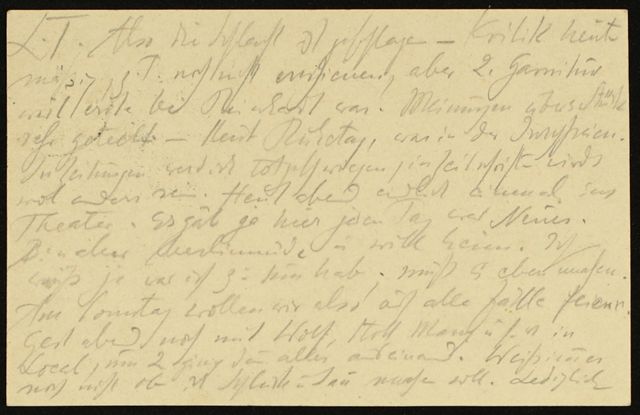 L. T. Also die Schlacht ist geschlagen – Kritik heute
mäßig, z. T. noch nicht erschienen, aber 2. Garnitur
weil erste bei Reinhardt war. Meinungen über Stück
sehr geteilt – Heut Ruhetag, was in der
In Zeitungen werd ich totgeschwiegen, in Zeitschriften wirds
wol anders sein. Heut abend endlich einmal ins
Theater. Es gäb ja hier jeden Tag was Neues.
Bin aber u will heim. Ich
weiß ja was ich zu tun hab, muß es eben machen.
Am Sonntag wollen wir also auf alle Fälle feiern.
Gest abend noch mit Wolf, u. s. w in
Local, um 2 ging dann alles auseinand. Weiß immer
noch nicht ob ich machen soll. Lediglich